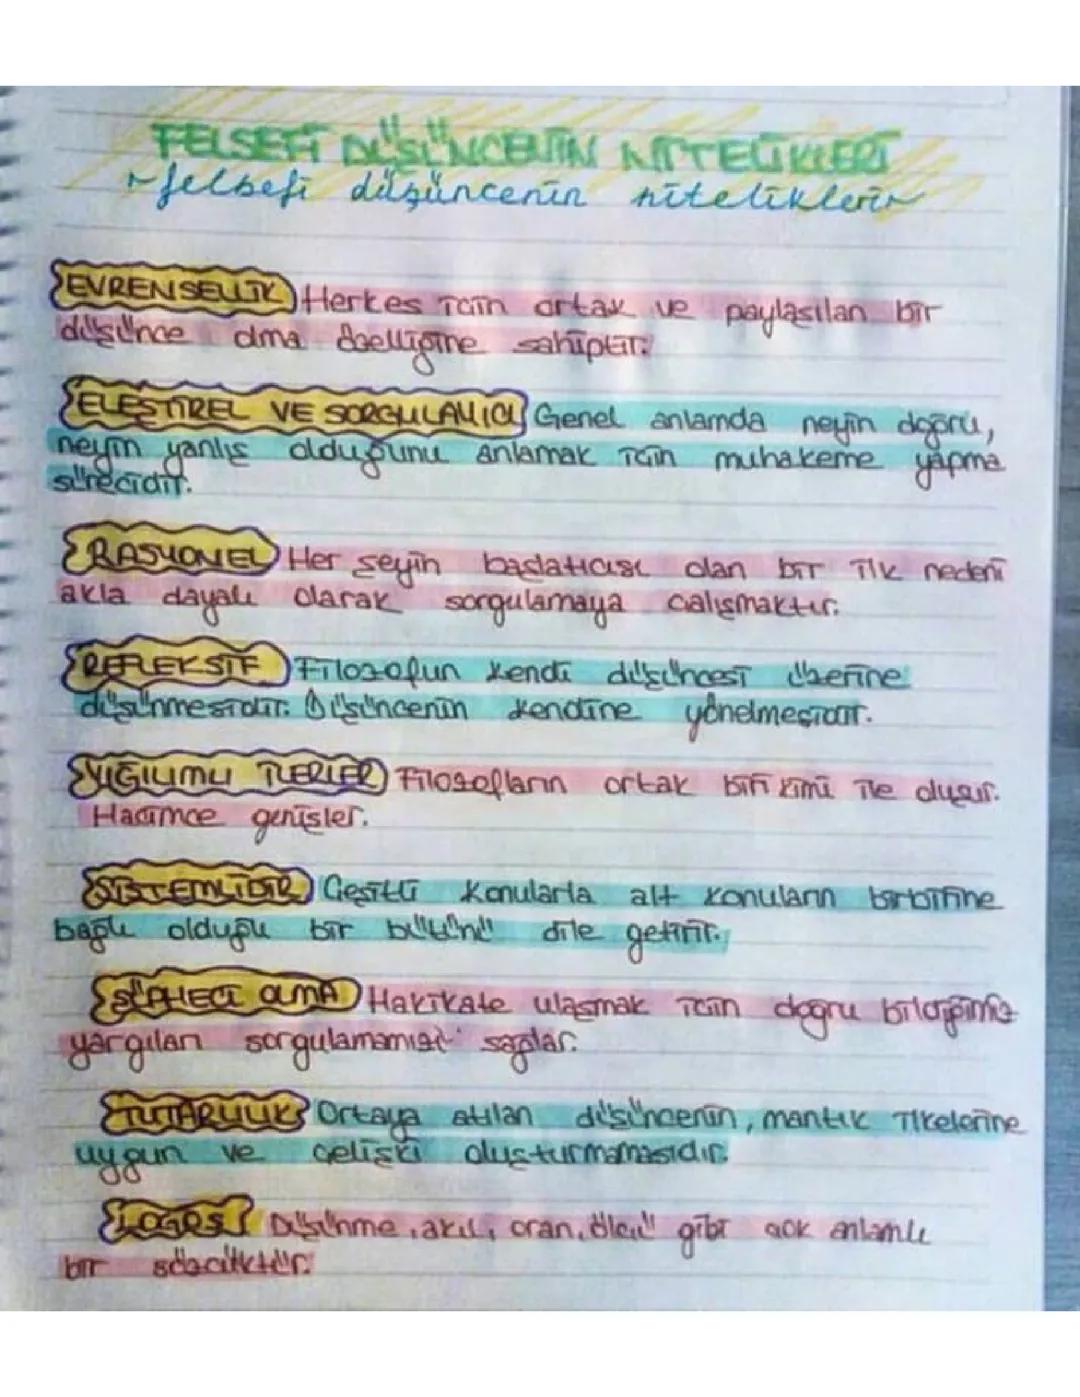 FELSEFİ DÜŞÜNCENİN NİTELİKLERİ
felsefi düşüncenin nitelikleri
EVRENSELLİK Herkes için ortak ve paylaşılan bir
düşünce olma özelliğine sahiptir.
ELEŞTİREL VE SORGULAYICI Genel anlamda neyin doğru,
neyin yanlış olduğunu anlamak için muhakeme yapma
sürecidir.
RASYONEL Her şeyin başlatıcısı olan bir ilk nedeni
akla dayalı olarak sorgulamaya çalışmaktır.
REFLEKSİF Filozofun kendi düşüncesi üzerine
düşünmesidir. Düşüncenin kendine yönelmesidir.
YIĞILIMLI İLERLER Filozofların ortak birikimi ile oluşur.
Hacimce genişler.
SİSTEMLİDİR Çeşitli konularla alt konuların birbirine
bağlı olduğu bir bütünü dile getirir.
ŞÜPHECİ OLMA Hakikate ulaşmak için doğru bildiğimiz
yargıları sorgulamamızı sağlar.
TUTARLILIK Ortaya atılan düşüncenin, mantık ilkelerine
uygun ve çelişki oluşturmamasıdır.
LOGOS Düşünme, akıl, oran, ölçü gibi çok anlamlı
bir sözcüktür.